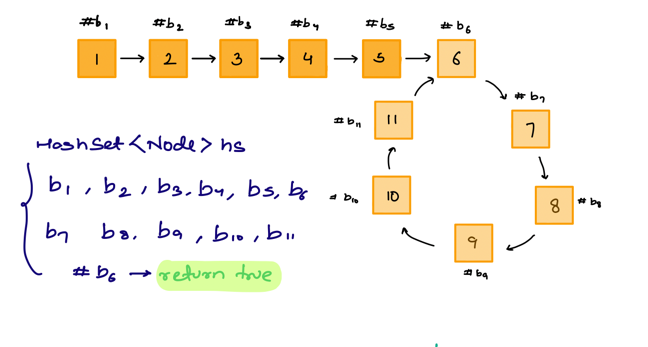 #b1 #b2 #b3 #b4 #b5 #b6
1 2 3 4 5 6
#b7
7
#b11
11
#b8
8
#b10
10
#b9
9
HashSet <Node> hs
b1 , b2 , b3, b4, b5, b6
b7 b8, b9 , b10, b11
#b6 → return true